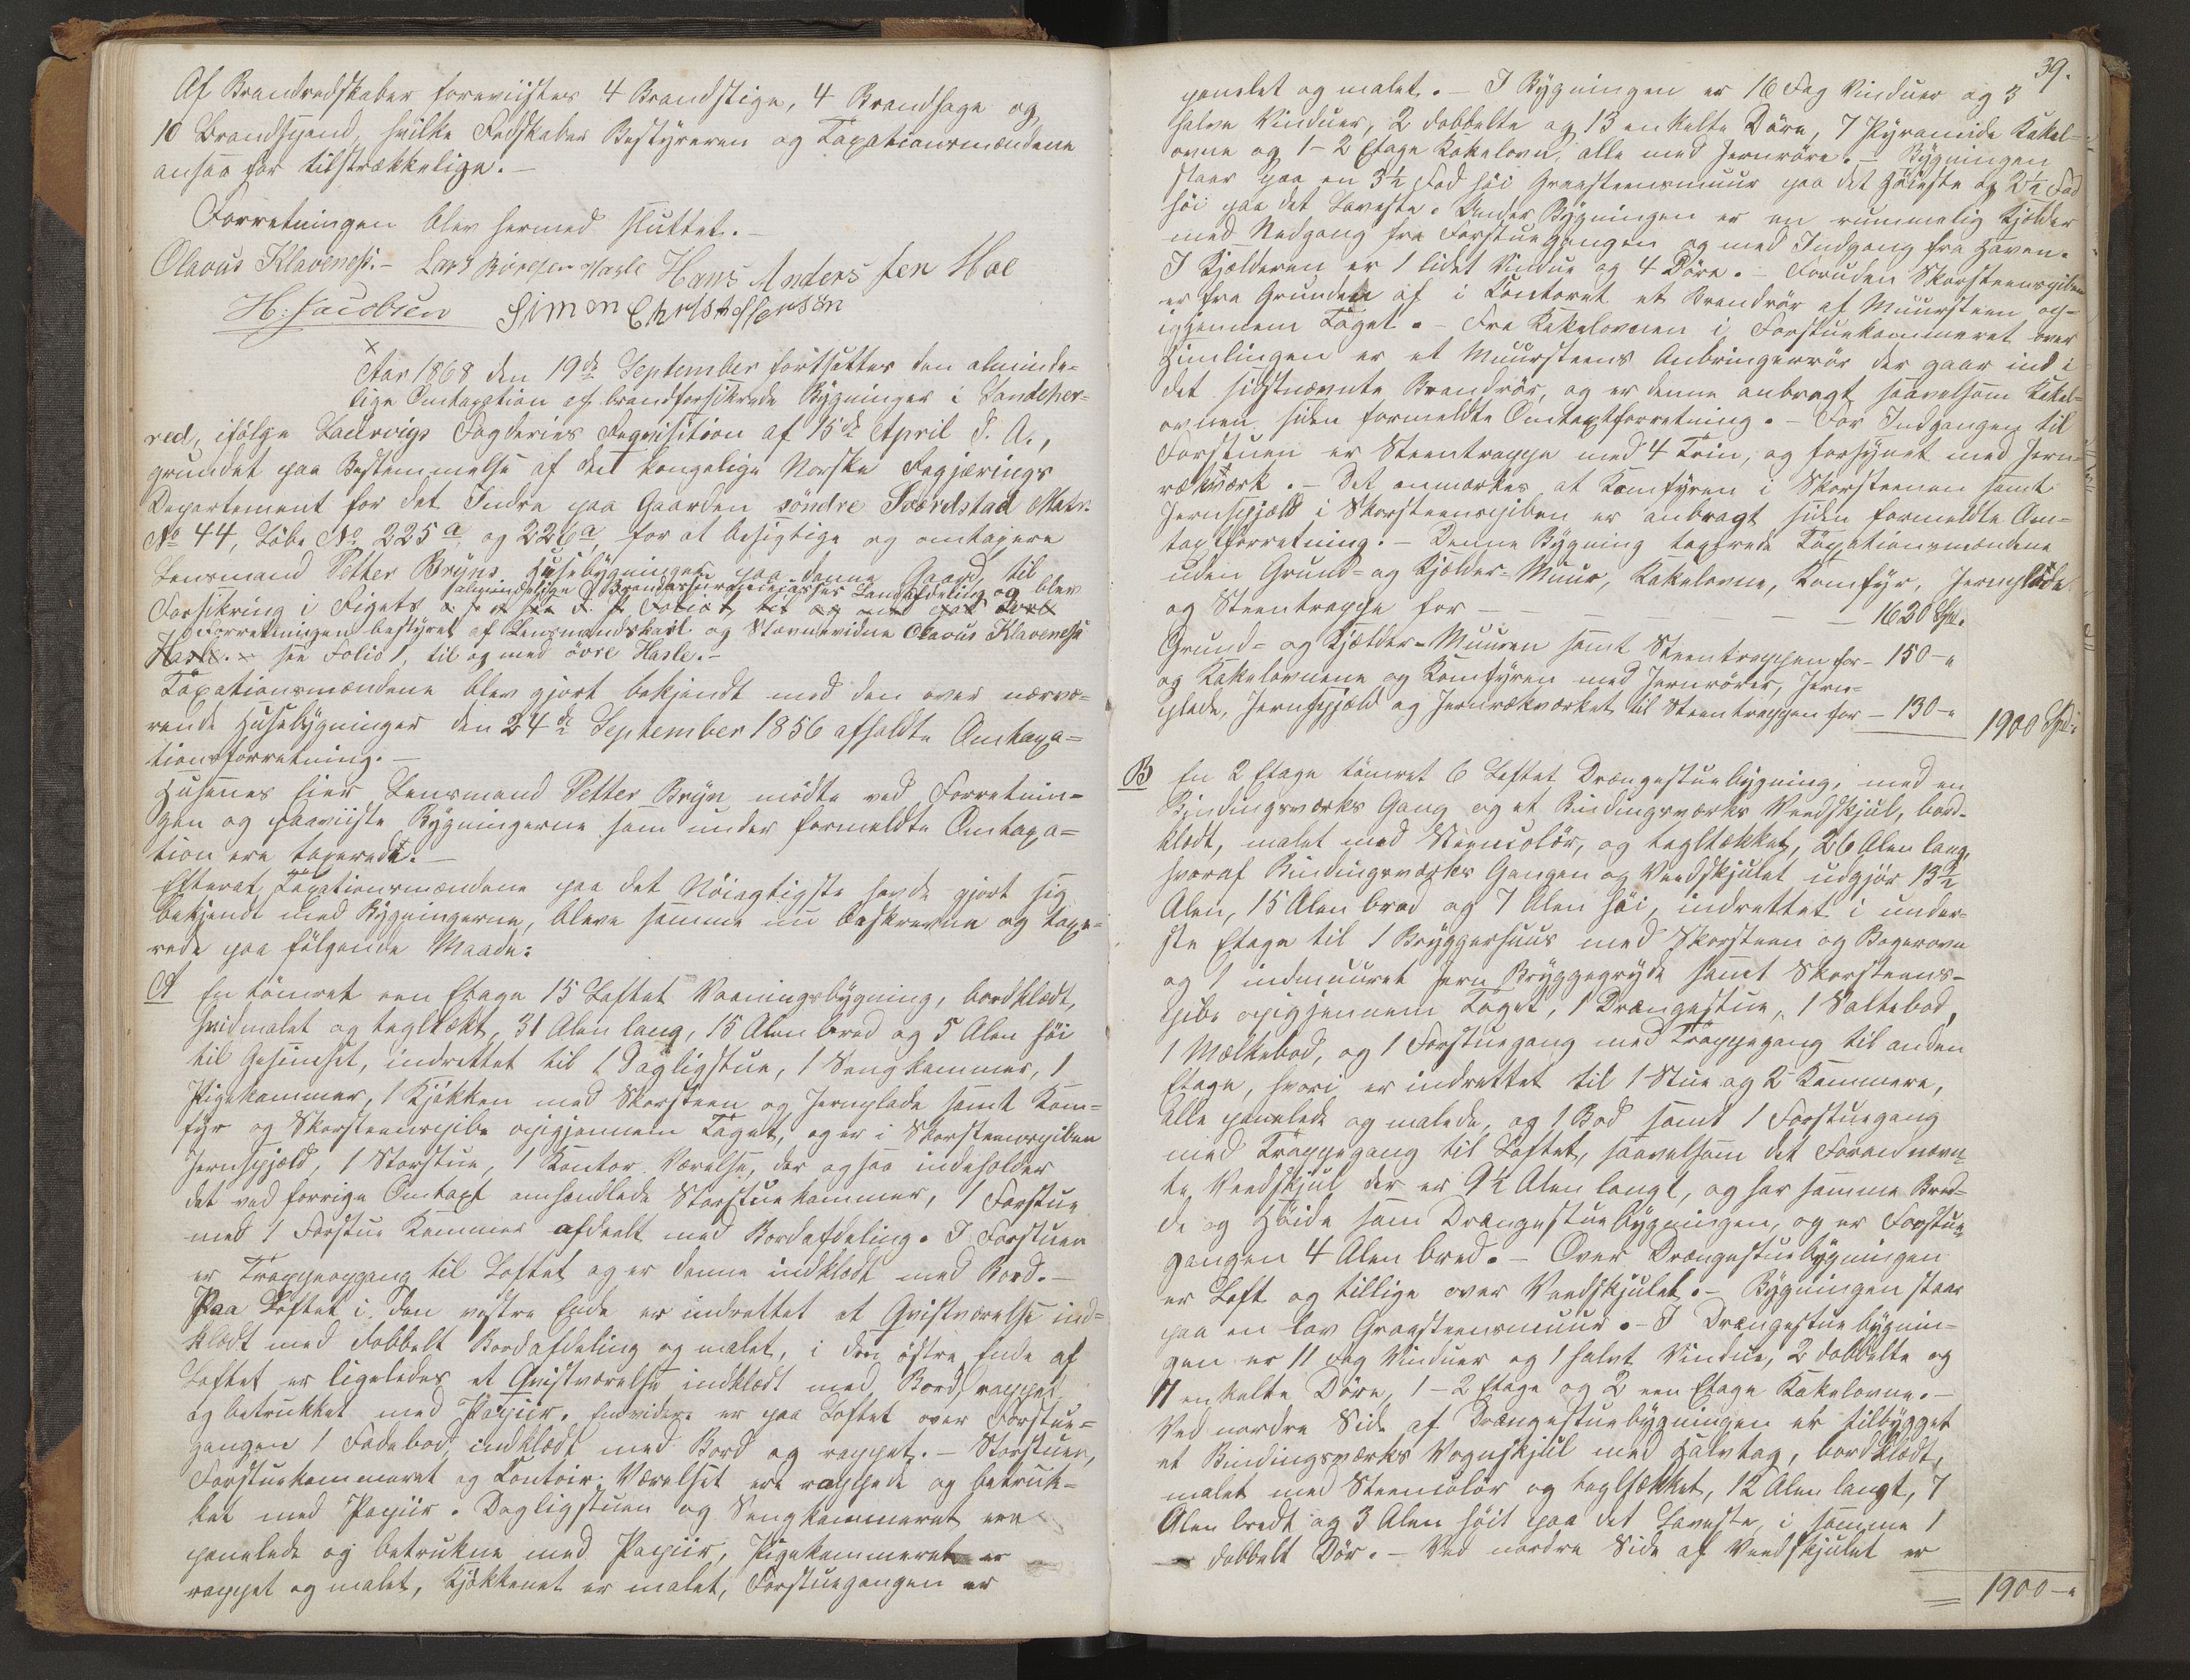 Af Brandredskaber foreviistes 4 Brandstige, 4 Brandhage og
10 Brandspand, hvilke Redskaber Bestyreren og Taxationsmændene
ansaa for tilstrækkelige. –
Forretningen blev hermed sluttet. –
Olavus Klaveness. – Lars Börresen Hasle Hans Anders sen Hoe
H. Jacobsen Simon Christoffersön
Aar 1868 den 19de September fortsattes den alminde-
lige Omtaxation af brandforsikrede Bygninger i Sandeher-
red, ifölge Laurvigs Fogderies Reqvisition af 15de April d. A.,
grundet paa Bestemmelse af det kongelige Norske Regjerings
Departement for det Indre paa Gaarden söndre Sværdstad Matr.
No 44, Löbe No 225a og 226a for at besigtige og omtaxere
Lensmand Petter Bryns Huusebygninger paa denne Gaard, til
almindelige Brandassurancekasses Landafdeling og blev
Forsikring i Rigets
Forretningen bestyret af Lensmandskarl og Stevnevidne Olavus Klaveness
Hasle. – see Folio 1, til og med övre Hasle. –
Taxationsmændene blev gjort bekjendt med den over nærvæ-
rende Huusebygninger den 24de September 1856 afholdte Omtaxa-
tionsforretning. –
Husenes Eier Lensmand Petter Bryn mödte ved Forretnin-
gen og paaviiste Bygningerne som under formeldte Omtaxa-
tion ere taxerede. –
Efterat Taxationsmændene paa det Nöiagtigste havde gjort sig
bekjendt med Bygningerne, bleve samme nu beskrevne og taxe-
rede paa fölgende Maade:
A En tömret een Etage 15 Loftet Vaaningsbygning, bordklædt,
hvidmalet og teglækt, 31 Alen lang, 15 Alen bred og 5 Alen höi
til Gesimset, indrettet til 1 Dagligstue, 1 Sengkammer, 1
Pigekammer, 1 Kjökken med Skorsteen og Jernplade samt Kom-
fyr og Skorsteenspibe opigjennem Taget, og er i Skorsteenspiben
Jernspjæld, 1 Storstue, 1 Kontor Værelse, der ogsaa indeholder
det ved forrige Omtaxt omhandlede Storstuekammer, 1 Forstue
med 1 Forstue Kammer afdeelt med Bordafdeling. I Forstuen
er Trappeopgang til Loftet og er denne indklædt med Bord. –
Paa Loftet i den vestre Ende er indrettet et Qvistværelse ind-
klædt med dobbelt Bordafdeling og malet, i den östre Ende af
Loftet er ligeledes et Qvistværelse indklædt med Bord, rappet
og betrukket med Papiir. Endvidere er paa Loftet over Forstue-
gangen 1 Fadebod, indklædt med Bord og rappet. – Storstuen,
Forstuekammeret og Contoir Værelset ere rappede og betruk-
ket med Papiir. Dagligstuen og Sengkammeret ere
panelede og betrukne med Papiir, Pigekammeret er
rappet og malet, Kjökkenet er malet, Forstuegangen er
39.
panelet og malet. – I Bygningen er 16 Fag Vinduer og 3
halve Vinduer, 2 dobbelte og 13 enkelte Döre, 7 Pyramide Kakel-
ovne og 1 – 2 Etage Kakelovn, alle med Jernröre. – Bygningen
staar paa en 3½ Fod höi Graasteensmuur paa det Höieste og 2½ Fod
höi paa det Laveste. Under Bygningen er en rummelig Kjælder
med Nedgang fra Forstuegangen og med Indgang fra Haven.
I Kjælderen er 1 lidet Vindue og 4 Döre. – Foruden Skorsteenspiben
er fra Grunden af i Contoret et Brandrör af Muursteen op-
igjennem Taget. – Fra Kakelovnen i Forstuekammeret over
Himlingen er et Muursteens Anbringerrör der gaar ind i
det sidstnævnte Brandrör, og er denne anbragt saavelsom Kakel-
ovnen siden formeldte Omtaxtforretning. – For Indgangen til
Forstuen er Steentrappe med 4 Trin, og forsynet med Jern-
rækværk. – Det anmærkes at Komfyren i Skorsteenen samt
Jernspjæld i Skorsteenspiben er anbragt siden formeldte Om-
taxtforretning. – Denne Bygning taxerede Taxationsmændene
uden Grund- og Kjælder-Muur, Kakelovne, Komfyr, Jernplade
og Steentrappe for – – – – – 1620 Spd.
Grund- og Kjælder-Muuren samt Steentrappen for – 150 – "
og Kakelovnene og Komfyren med Jernrörer, Jern-
plade, Jernspjæld og Jernrækværket til Steentrappen for – 130 – " 1900 Spd.
B En 2 Etage tömret 6 Loftet Drængestuebygning, med en
Bindingsværks Gang og et Bindingsværks Veedskjul, bord-
klædt, malet med Steencolör, og tegltækket, 26 Alen lang,
hvoraf Bindingsværks Gangen og Veedskjulet udgjör 13½
Alen, 15 Alen bred og 7 Alen höi, indrettet i under-
ste Etage til 1 Bryggerhuus med Skorsteen og Bagerovn
og 1 indmuuret Jern Bryggegryde samt Skorsteens-
pibe opigjennem Taget, 1 Drængestue, 1 Saltebod,
1 Mælkebod, og 1 Forstuegang med Trappegang til anden
Etage, hvori er indrettet til 1 Stue og 2 Kammere,
alle panelede og malede, og 1 Bod samt 1 Forstuegang
med Trappegang til Loftet, saavelsom det Forannævn-
te Veedskjul der er 9½ Alen langt, og har samme Bred-
de og Höide som Drængestuebygningen, og er Forstue-
gangen 4 Alen bred. – Over Drængestuebygningen
er Loft og tillige over Veedskjulet. – Bygningen staar
paa en lav Graasteensmuur. – I Drængestuebygnin-
gen er 11 Fag Vinduer og 1 halvt Vindue, 2 dobbelte og
11 enkelte Döre, 1 – 2 Etage og 2 een Etage Kakelovne. –
Ved nordre Side af Drængestuebygningen er tilbygget
et Bindingsværks Vognskjul med Halvtag, bordklædt,
malet med Steencolör og tegltækket, 12 Alen langt, 7
Alen bredt og 3 Alen höit paa det Laveste, i samme 1
dobbelt Dör. – Ved nordre Side af Veedskjulet er
1900 – "